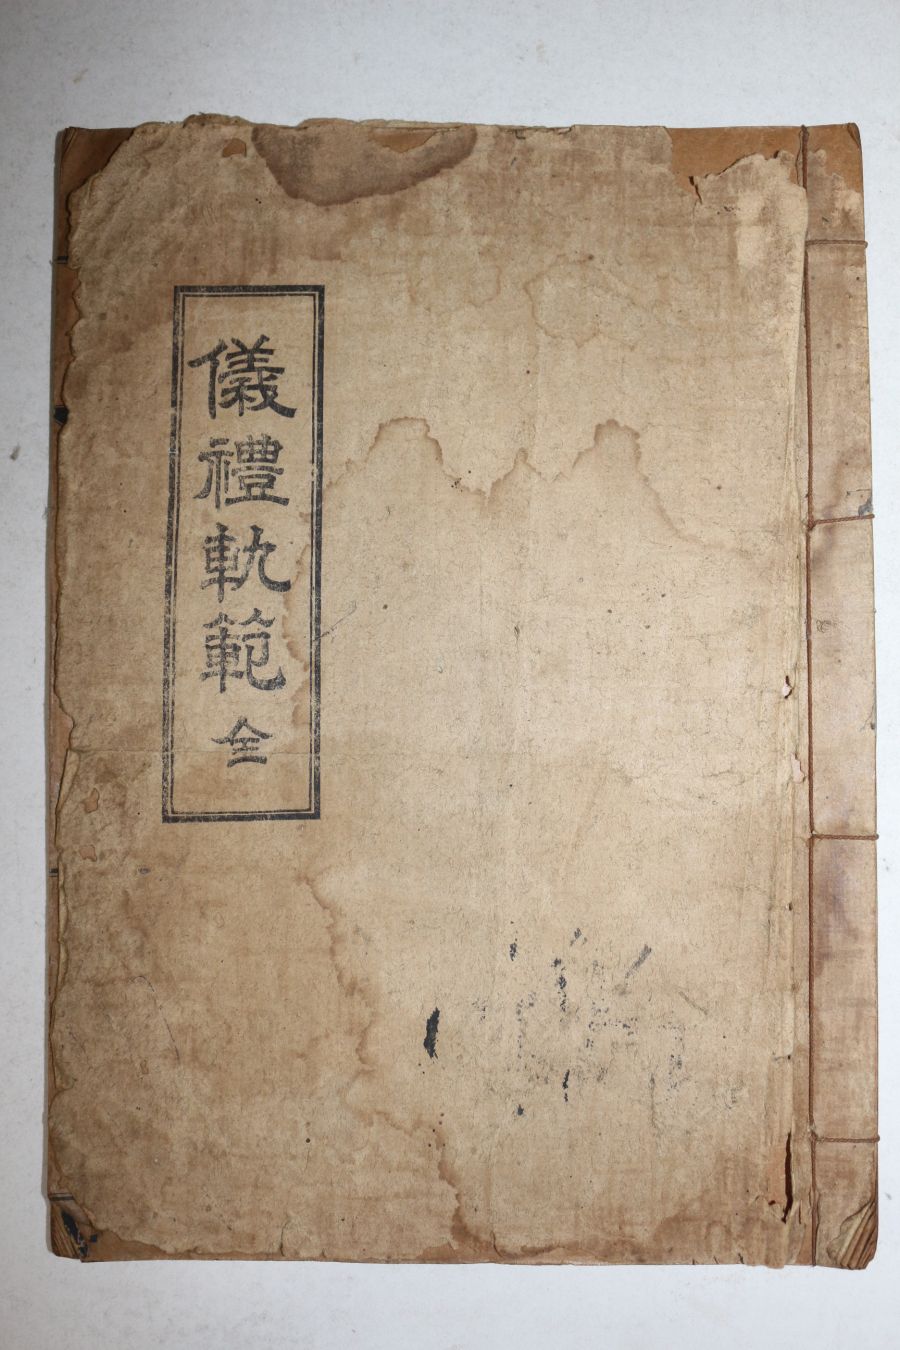 儀禮軌範 全